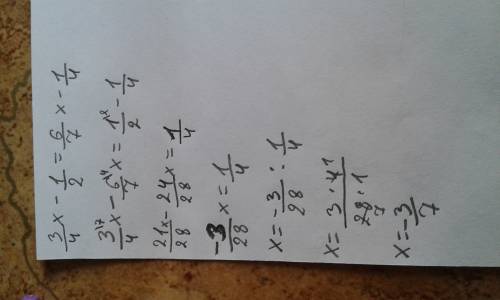 3/4 x - 1/2 = 6/7 x - 1/4
3\7/4 x - 6\4/7 x = 1\2/2 - 1/4
21x/28 - 24/28 x = 1/4
-3/28 x = 1/4
x = -3/28 : 1/4
x = 3 · 4 1/28 7 · 1
x = -3/7